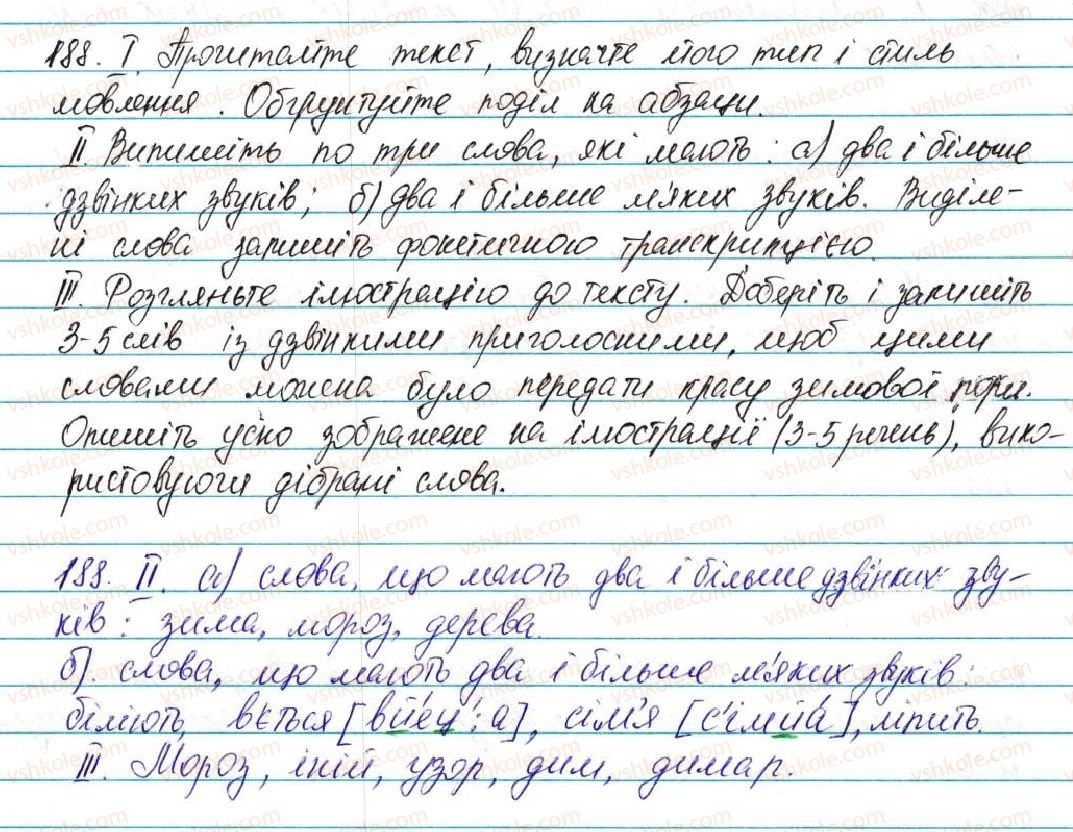 188. І. Прочитайте текст, визначте його тип і стиль
мовлення. Обґрунтуйте поділ на абзаци.
ІІ. Випишіть по три слова, які мають: а) два і більше
дзвінких звуків; б) два і більше м'яких звуків. Виділе-
ні слова запишіть фонетичною транскрипцією.
ІІІ. Розгляньте ілюстрацію до тексту. Доберіть і запишіть
3-5 слів із дзвінкими приголосними, щоб цими
словами можна було передати красу зимової пори.
Опишіть усно зображене на ілюстрації (3-5 речень), вико-
ристовуючи дібрані слова.
188. ІІ. а) слова, що мають два і більше дзвінких зву-
ків: зима, мороз, дерева.
б). слова, що мають два і більше м'яких звуків:
біліють, в'ється [вйец':а], сім'я [с'імйа], ліпить.
ІІІ. Мороз, іній, узор, дим, димар.